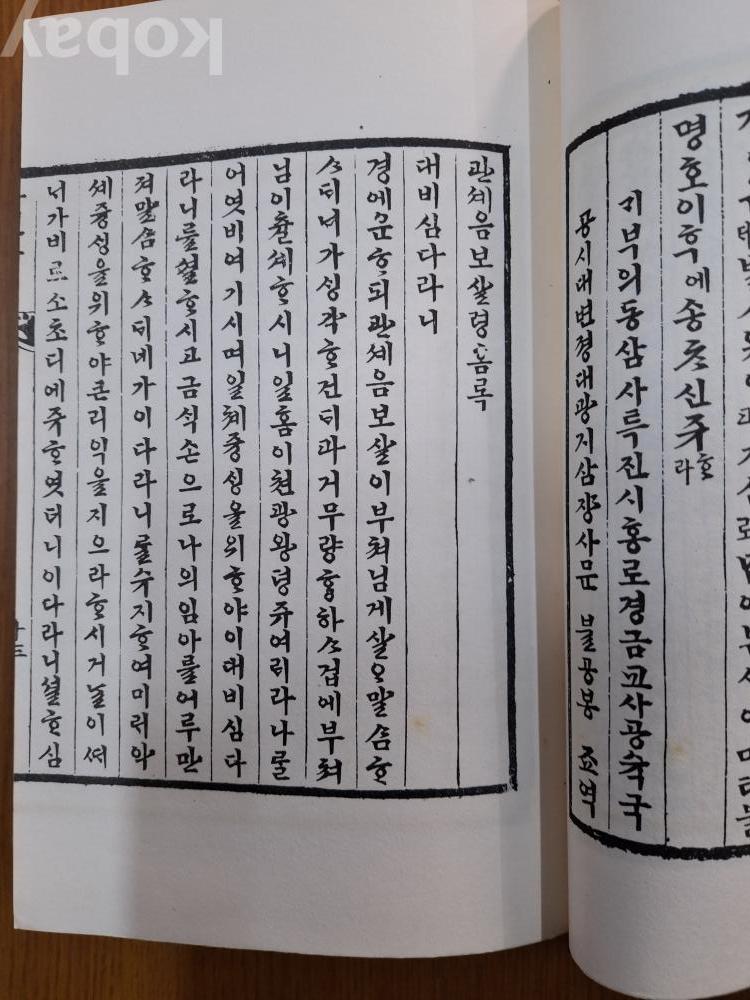 kobay
명호이후에송ᄒᆞ신쥬ᄒᆞ라
긔부의동삼사특진시홍로경금교사공슉국
공시대변졍대광지삼장사문 불공봉 죠역
관셰음보살령홈록
대비심다라니
경에운ᄒᆞ되관셰음보살이부쳐님게살오말ᄉᆞᆷᄒᆞ
ᄉᆞᄃᆡᄂᆡ가ᄉᆡᆼ각ᄒᆞ건ᄃᆡ과거무량항하ᄉᆞ겁에부쳐
님이츌셰ᄒᆞ시니일홈이쳔광왕령쥬여ᄅᆡ라나를
어엿비여기시며일쳬즁ᄉᆡᆼ을위ᄒᆞ야이대비심다
라니를셜ᄒᆞ시고금ᄉᆡᆨ손으로나의임아를어루만
져말ᄉᆞᆷᄒᆞᄉᆞᄃᆡ네가이다라니를슈지ᄒᆞ여미ᄅᆡ악
셰즁ᄉᆡᆼ을위ᄒᆞ야큰리익을지으라ᄒᆞ시거늘이ᄯᅢ
ᄂᆡ가비르소초디에쥬ᄒᆞ엿더니이다라니셜ᄒᆞ심